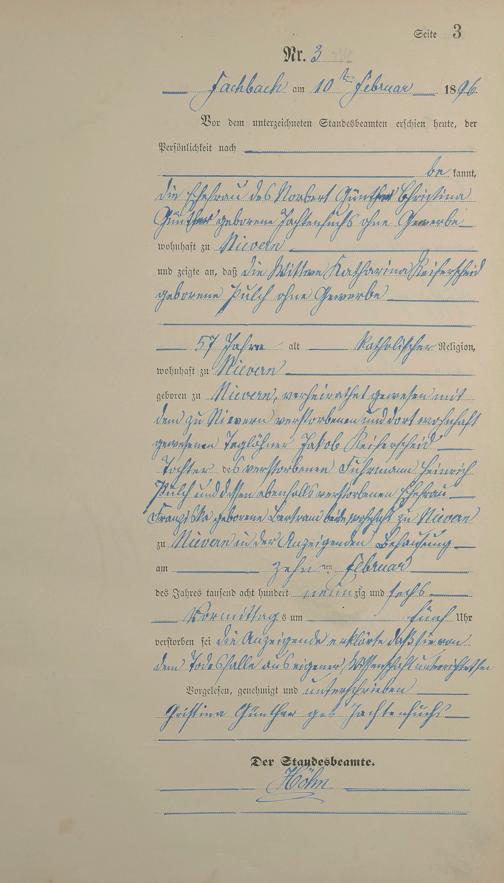 Seite 3
Nr. 3
Fachbach am 10ten Februar 1896
Vor dem unterzeichneten Standesbeamten erschien heute, der
Persönlichkeit nach
be kannt,
die Ehefrau des Norbert Günther Christina
Günther geborene Jachtenfuchs ohne Gewerbe
wohnhaft zu Nievern
und zeigte an, daß die Wittwe Katharina Reiferscheid
geborene Pulch ohne Gewerbe
57 Jahre alt katholischer Religion,
wohnhaft zu Nievern
geboren zu Nievern, verheirathet gewesen mit
dem zu Nievern verstorbenen und dort wohnhaft
gewesenen Taglöhner Jakob Reiferscheid
Tochter des verstorbenen Fuhrmann Heinrich
Pulch und dessen ebenfalls verstorbenen Ehefrau
geborene Bertram beide wohnhaft zu Nievern
zu Nievern in der Anzeigenden Behausung
am zehnten Februar
des Jahres tausend acht hundert neunzig und sechs
Vormittags um fünf Uhr
verstorben sei die Anzeigende erklärte daß sie von
dem Todesfalle aus eigener Wissenschaft unterrichtet sei
Vorgelesen, genehmigt und unterschrieben
Christina Günther geb Jachtenfuchs
Der Standesbeamte.
Höhn